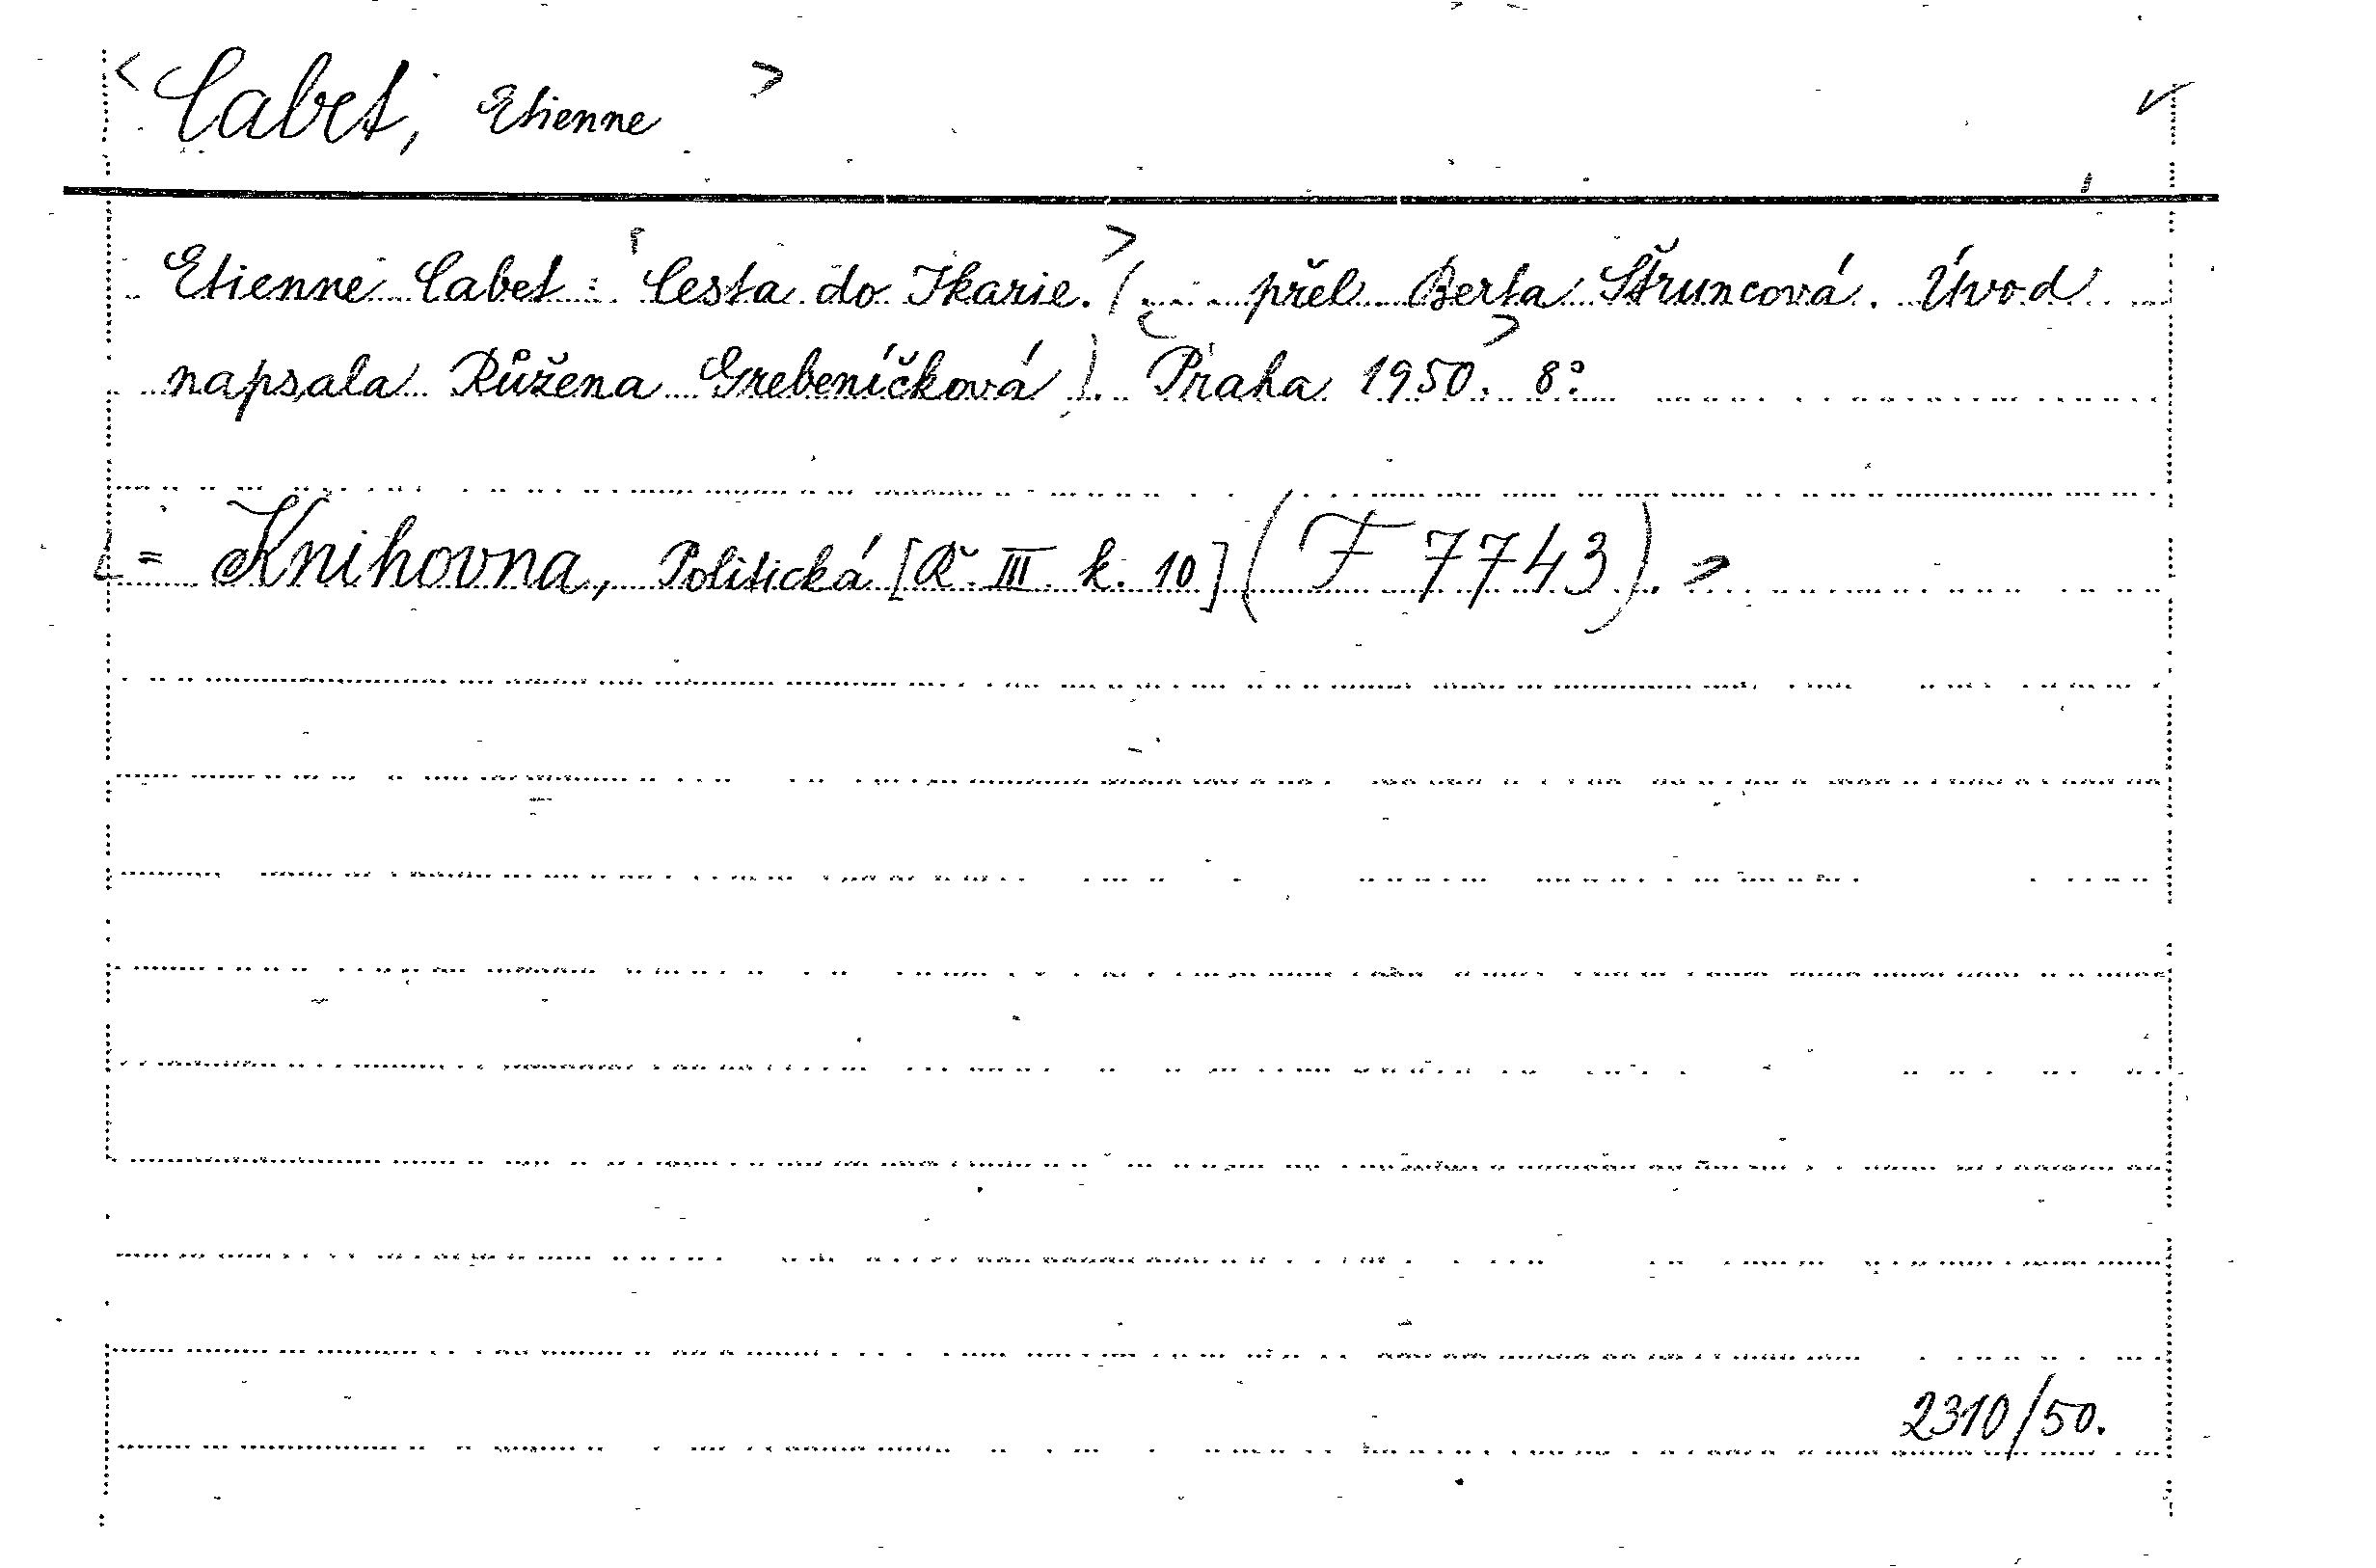 <Cabet, Etienne>
Etienne Cabet: Cesta do Ikarie. (... přel. Berta Štruncová. Úvod
napsala Růžena Grebeníčková). Praha 1950. 8°.
= Knihovna, Politická [Ř. III. k. 10] (F 7743).
2310/50.